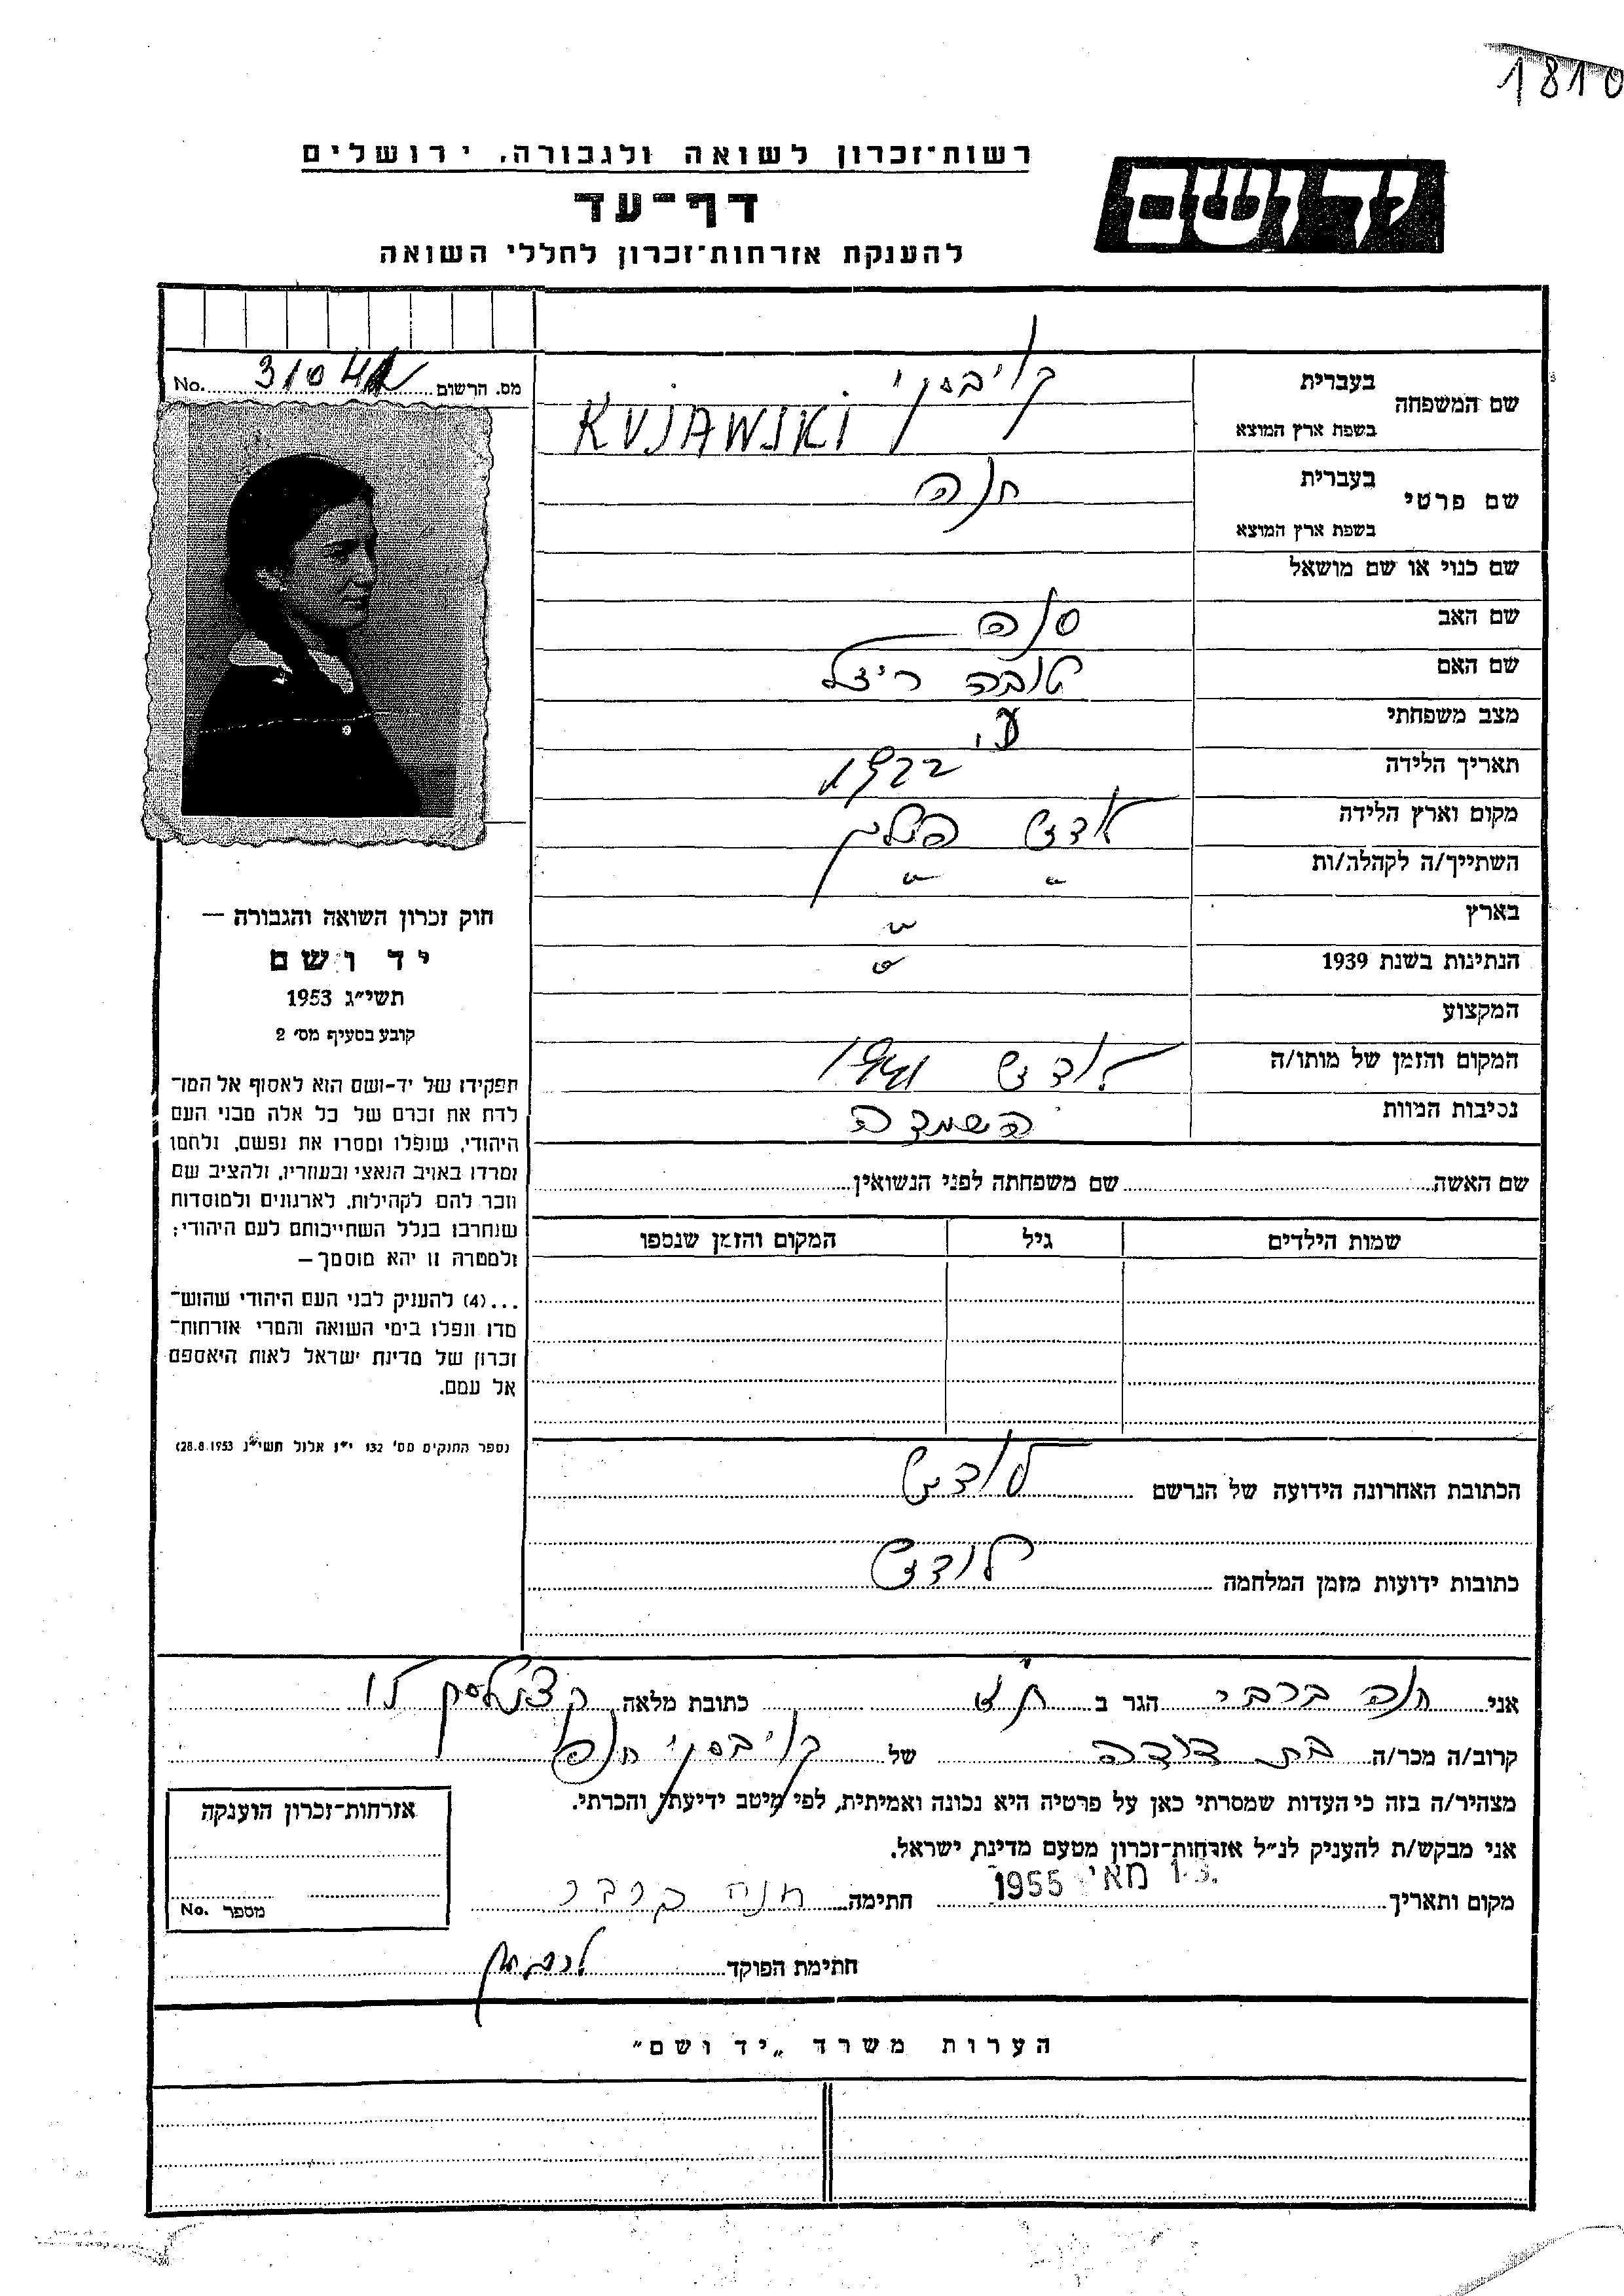 1810
רשות־זכרון לשואה ולגבורה, ירושלים
יד ושם
דף־עד
להענקת אזרחות־זכרון לחללי השואה
מס. הרשום No.
שם המשפחה
בעברית
בשפת ארץ המוצא KUJAWSKI
שם פרטי
בעברית חנה
בשפת ארץ המוצא
שם כנוי או שם מושאל
שם האב
שם האם טובה רייזל
מצב משפחתי
תאריך הלידה 1922
מקום וארץ הלידה לודז פולין
השתייך/ה לקהלה/ות " "
בארץ "
הנתינות בשנת 1939 "
המקצוע
המקום והזמן של מותו/ה לודז 1941
נסיבות המוות השמדה
שם האשה שם משפחתה לפני הנשואין
שמות הילדים גיל המקום והזמן שנספו
חוק זכרון השואה והגבורה —
יד ושם
תשי״ג 1953
קובע בסעיף מס׳ 2
תפקידו של יד-ושם הוא לאסוף אל המו־
לדת את זכרם של כל אלה מבני העם
היהודי, שנפלו ומסרו את נפשם, נלחמו
ומרדו באויב הנאצי ובעוזריו, ולהציב שם
וזכר להם לקהילות, לארגונים ולמוסדות
שנחרבו בגלל השתייכותם לעם היהודי;
ולמטרה זו יהא מוסמך —
...(4) להעניק לבני העם היהודי שהוש־
מדו ונפלו בימי השואה והמרי אזרחות־
זכרון של מדינת ישראל לאות היאספם
אל עמם.
(ספר החוקים מס׳ 132 י״ז אלול תשי״ג 28.8.1953)
הכתובת האחרונה הידועה של הנרשם לודז
כתובות ידועות מזמן המלחמה לודז
אני חנה הגר ב ת״א כתובת מלאה
קרוב/ה מכר/ה בת דודה של קויבסקי חנה
מצהיר/ה בזה כי העדות שמסרתי כאן על פרטיה היא נכונה ואמיתית, לפי מיטב ידיעתי והכרתי.
אני מבקש/ת להעניק לנ״ל אזרחות־זכרון מטעם מדינת ישראל.
מקום ותאריך מאי 1955 חתימה חנה
חתימת הפוקד
אזרחות־זכרון הוענקה
מספר No.
הערות משרד „יד ושם״